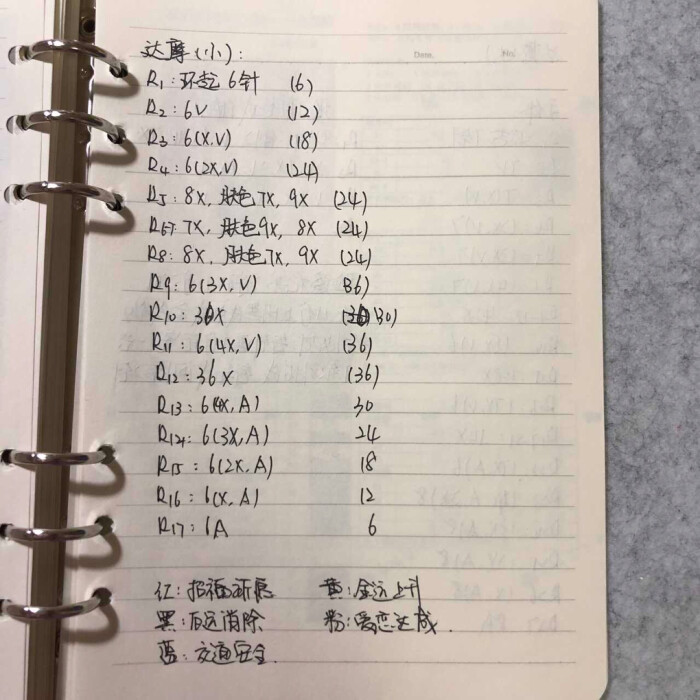 达摩(小):
R1:环起6针 (6)
R2:6V (12)
R3:6(X,V) (18)
R4:6(2X,V) (24)
R5:8X,肤色7X,9X (24)
R67:7X,肤色9X,8X (24)
R8:8X,肤色7X,9X (24)
R9:6(3X,V) 36)
R10:36X 30)
R11:6(4X,V) (36)
R12:36X (36)
R13:6(4X,A) 30
R14:6(3X,A) 24
R15:6(2X,A) 18
R16:6(X,A) 12
R17:6A 6
红:招福 黄:金运上升
黑:厄运消除 粉:爱恋达成.
蓝:交通安全.